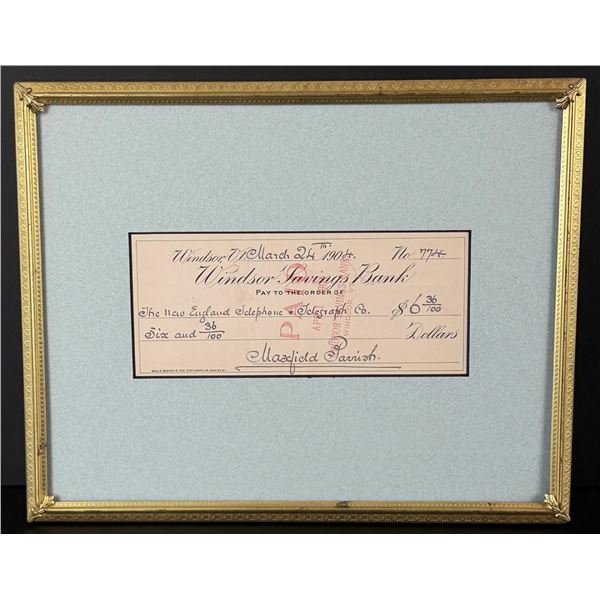 Windsor, Vt. March 24th 1904. No 774
Windsor Savings Bank
PAY TO THE ORDER OF
The New England Telephone & Telegraph Co. $6 36/100
Six and 36/100 Dollars
Maxfield Parrish.
PAID